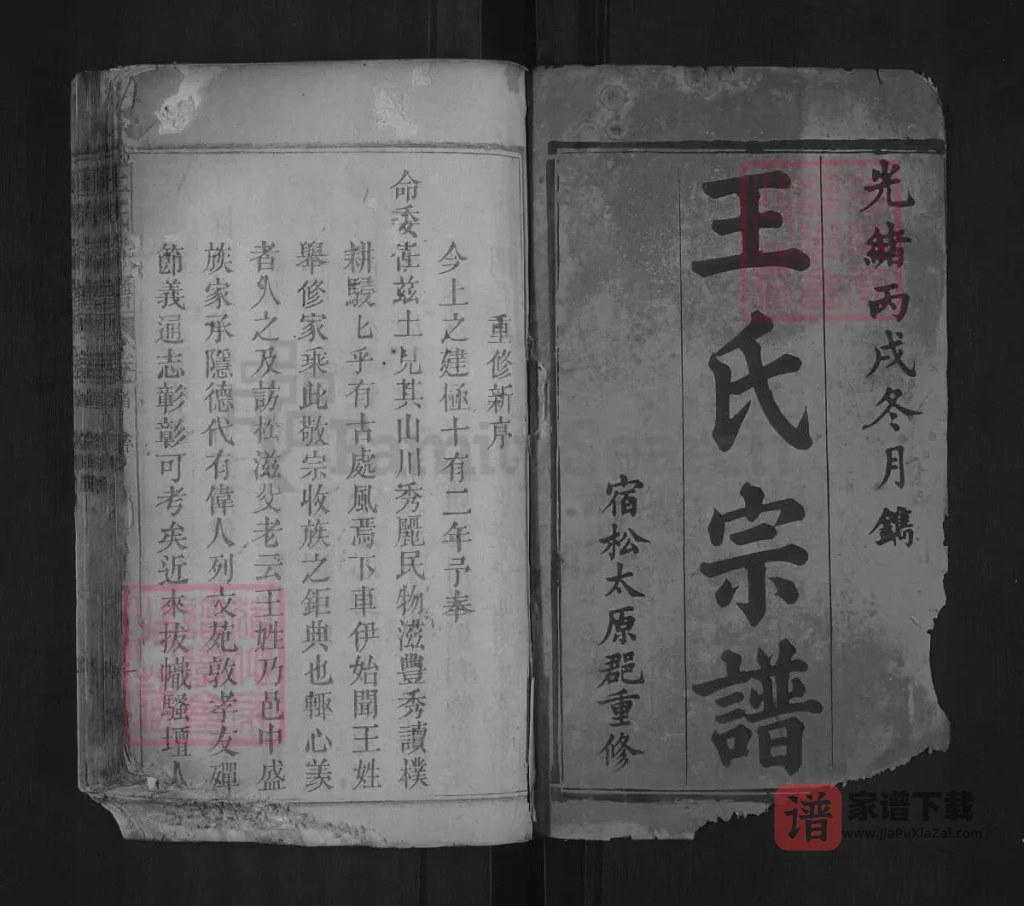 光緒丙戌冬月鐫
王氏宗譜
宿松太原郡重修
重修新序
今上之建極十有二年予奉
命委荏茲土見其山川秀麗民物滋豐秀讀樸
耕駸匕乎有古處風焉下車伊始聞王姓
舉修家乘此敬宗收族之鉅典也輒心羨
者人之及訪松滋父老云王姓乃邑中盛
族家承隱德代有偉人列文苑敦孝友嬋
節義通志彰彰可考矣近來拔幟騷壇人
FamilySearch
谱
家谱下载
www.JiaPuXiaZai.com